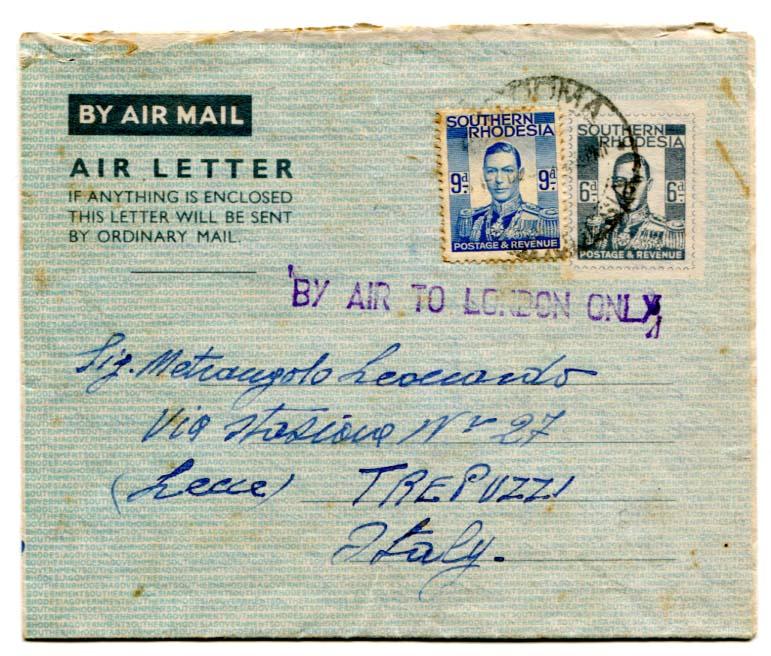 BY AIR MAIL
AIR LETTER
IF ANYTHING IS ENCLOSED
THIS LETTER WILL BE SENT
BY ORDINARY MAIL.
SOUTHERN
RHODESIA
9d. 9d.
POSTAGE & REVENUE
SOUTHERN
RHODESIA
6d. 6d.
POSTAGE & REVENUE
BY AIR TO LONDON ONLY
Sig. Metrangolo Leonardo
Via Stazione Nr 27
(Lecce) TREPUZZI
Italy.